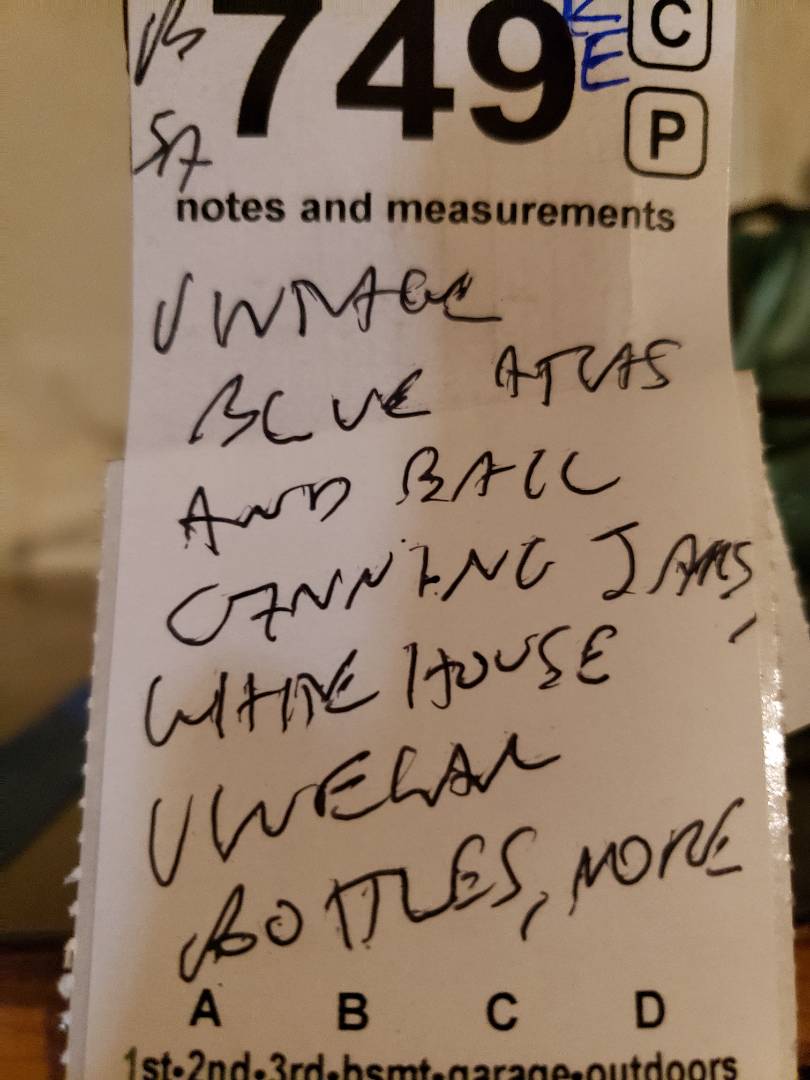 749 C
E
P
notes and measurements
VINTAGE
BLUE ATLAS
AND BALL
CANNING JARS,
WHITE HOUSE
VINEGAR
BOTTLES, MORE
A B C D
1st•2nd•3rd•bsmt•garage•outdoors